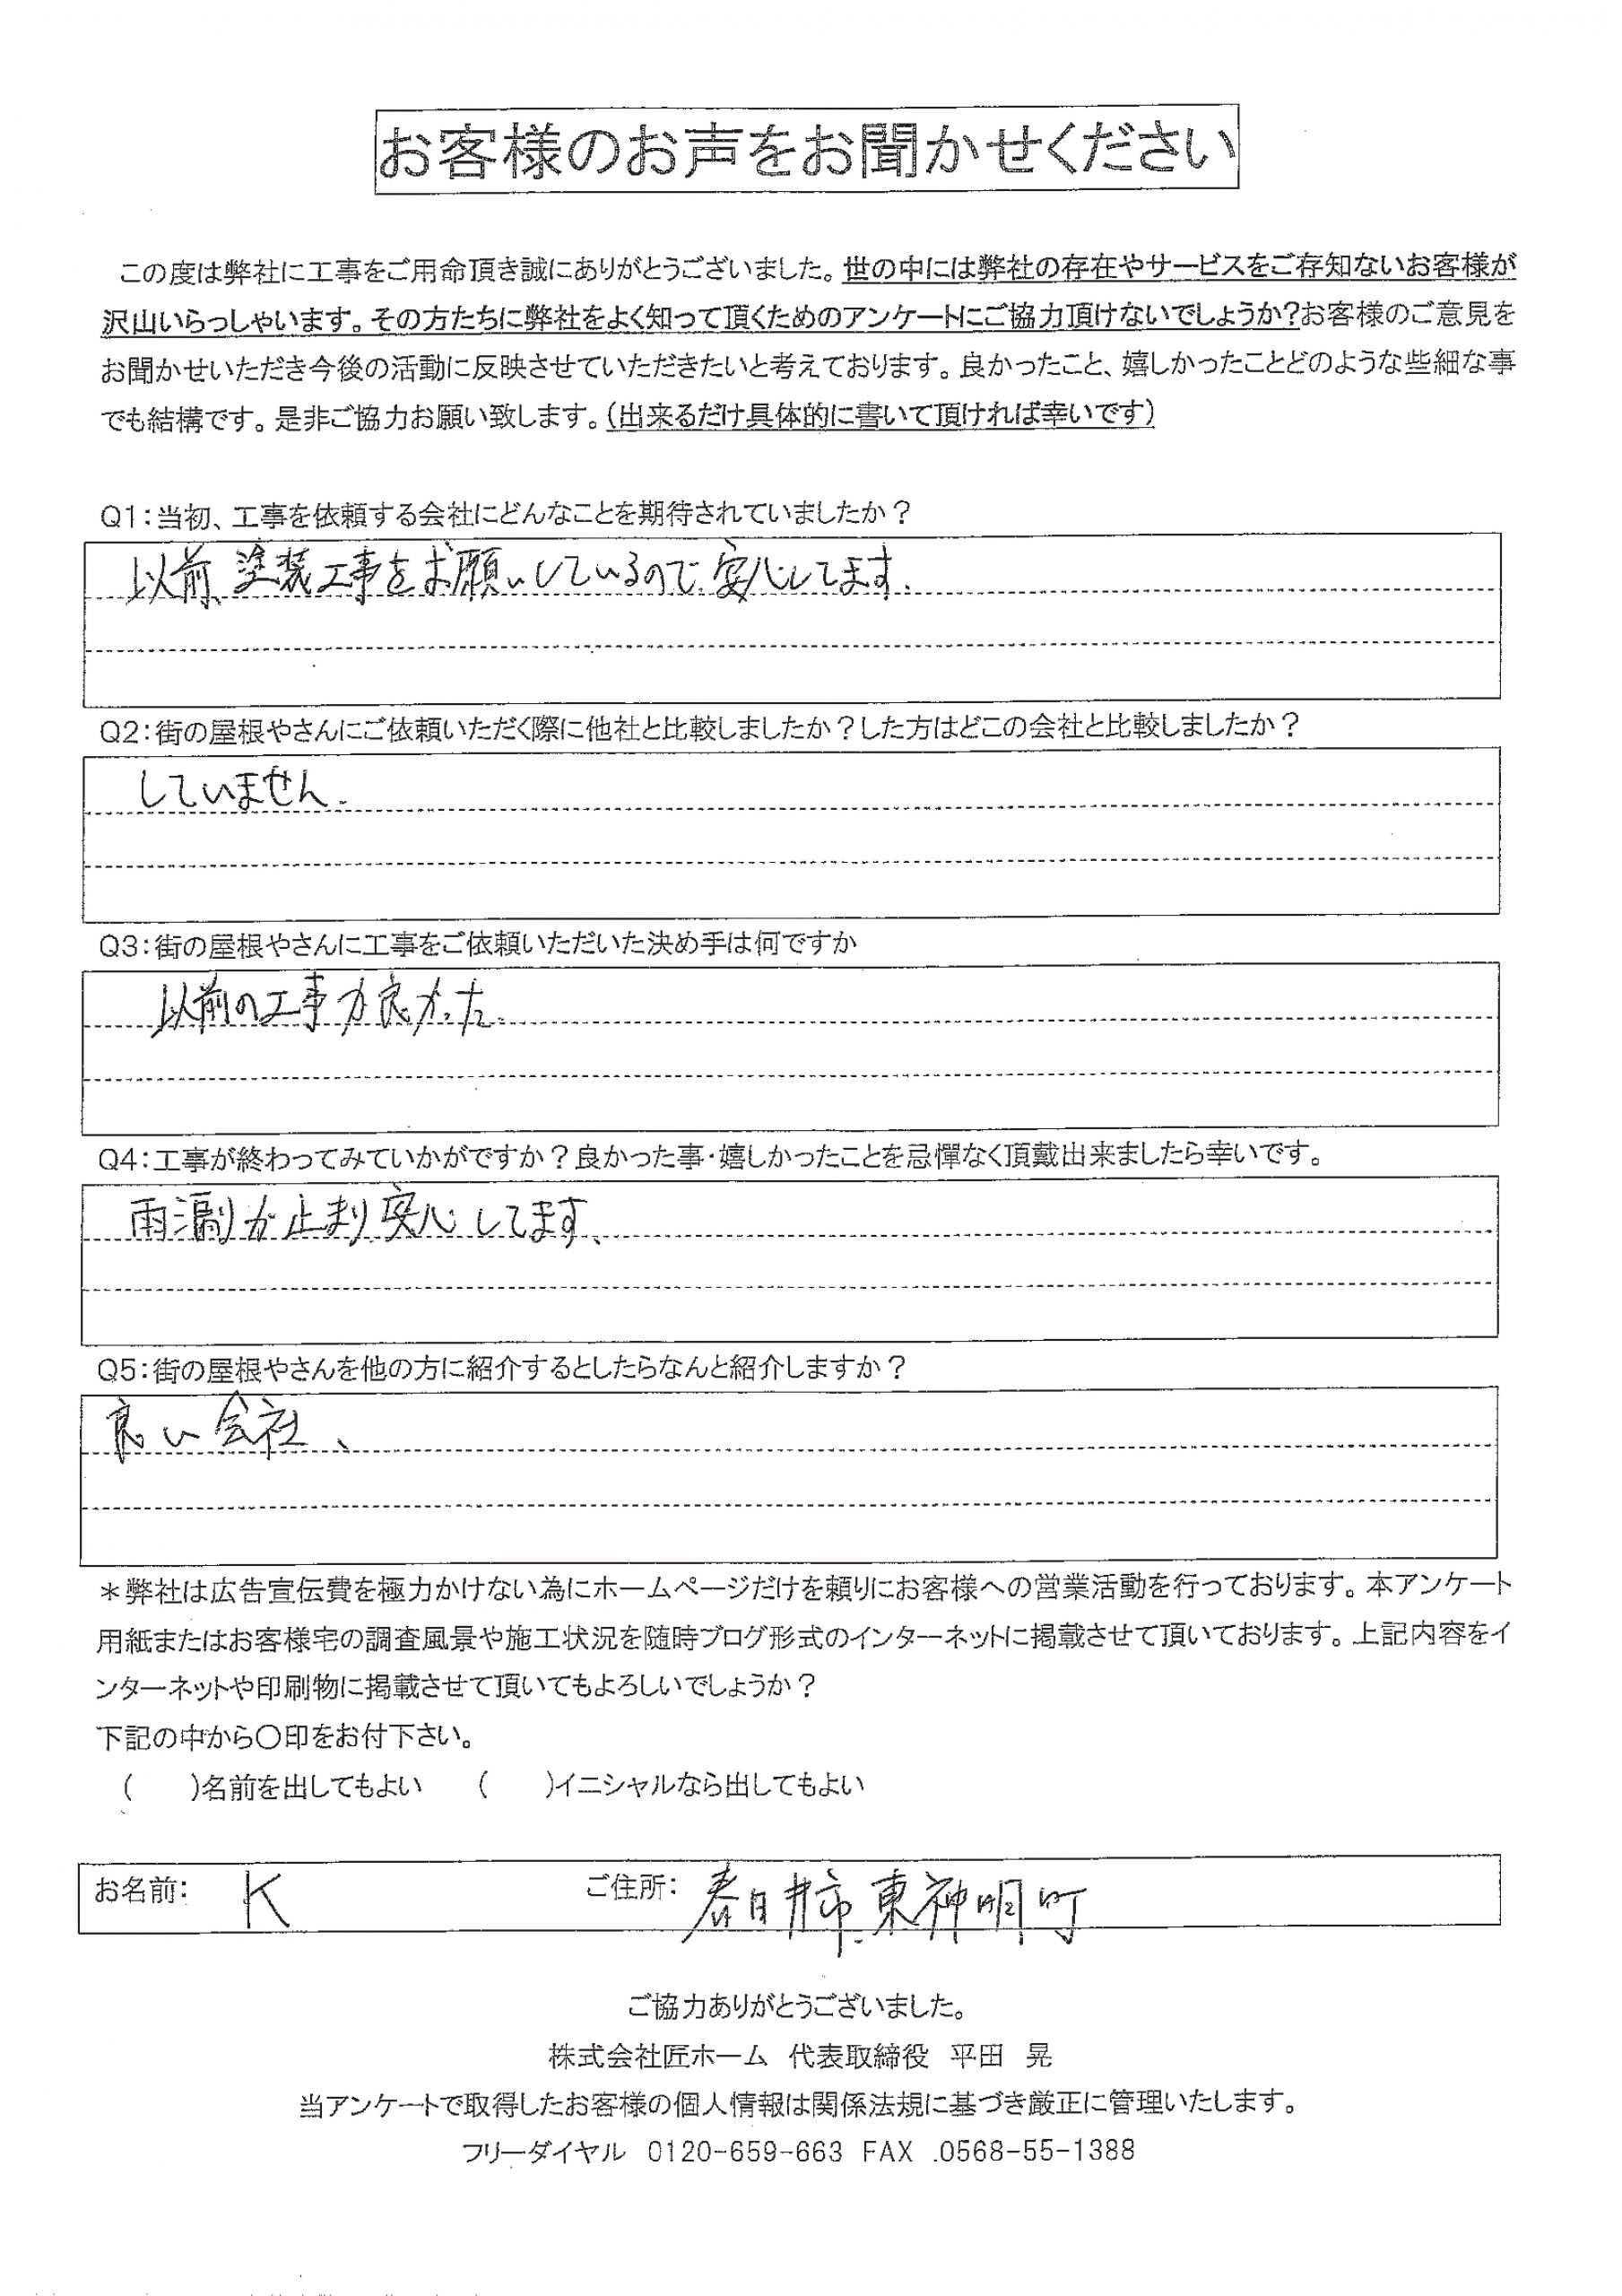 お客様のお声をお聞かせください
この度は弊社に工事をご用命頂き誠にありがとうございました。世の中には弊社の存在やサービスをご存知ないお客様が
沢山いらっしゃいます。その方たちに弊社をよく知って頂くためのアンケートにご協力頂けないでしょうか?お客様のご意見を
お聞かせいただき今後の活動に反映させていただきたいと考えております。良かったこと、嬉しかったことどのような些細な事
でも結構です。是非ご協力お願い致します。(出来るだけ具体的に書いて頂ければ幸いです)
Q1:当初、工事を依頼する会社にどんなことを期待されていましたか?
以前、塗装工事をお願いしているので、安心してます。
Q2:街の屋根やさんにご依頼いただく際に他社と比較しましたか?した方はどこの会社と比較しましたか?
していません。
Q3:街の屋根やさんに工事をご依頼いただいた決め手は何ですか
以前の工事が良かった。
Q4:工事が終わってみていかがですか?良かった事・嬉しかったことを忌憚なく頂戴出来ましたら幸いです。
雨漏りが止まり、安心してます、
Q5:街の屋根やさんを他の方に紹介するとしたらなんと紹介しますか?
良い会社、
*弊社は広告宣伝費を極力かけない為にホームページだけを頼りにお客様への営業活動を行っております。本アンケート
用紙またはお客様宅の調査風景や施工状況を随時ブログ形式のインターネットに掲載させて頂いております。上記内容をイ
ンターネットや印刷物に掲載させて頂いてもよろしいでしょうか?
下記の中から〇印をお付下さい。
(　　)名前を出してもよい　　(　　)イニシャルなら出してもよい
お名前: K　ご住所: 春日井市東神明町
ご協力ありがとうございました。
株式会社匠ホーム　代表取締役　平田　晃
当アンケートで取得したお客様の個人情報は関係法規に基づき厳正に管理いたします。
フリーダイヤル　0120-659-663 FAX .0568-55-1388